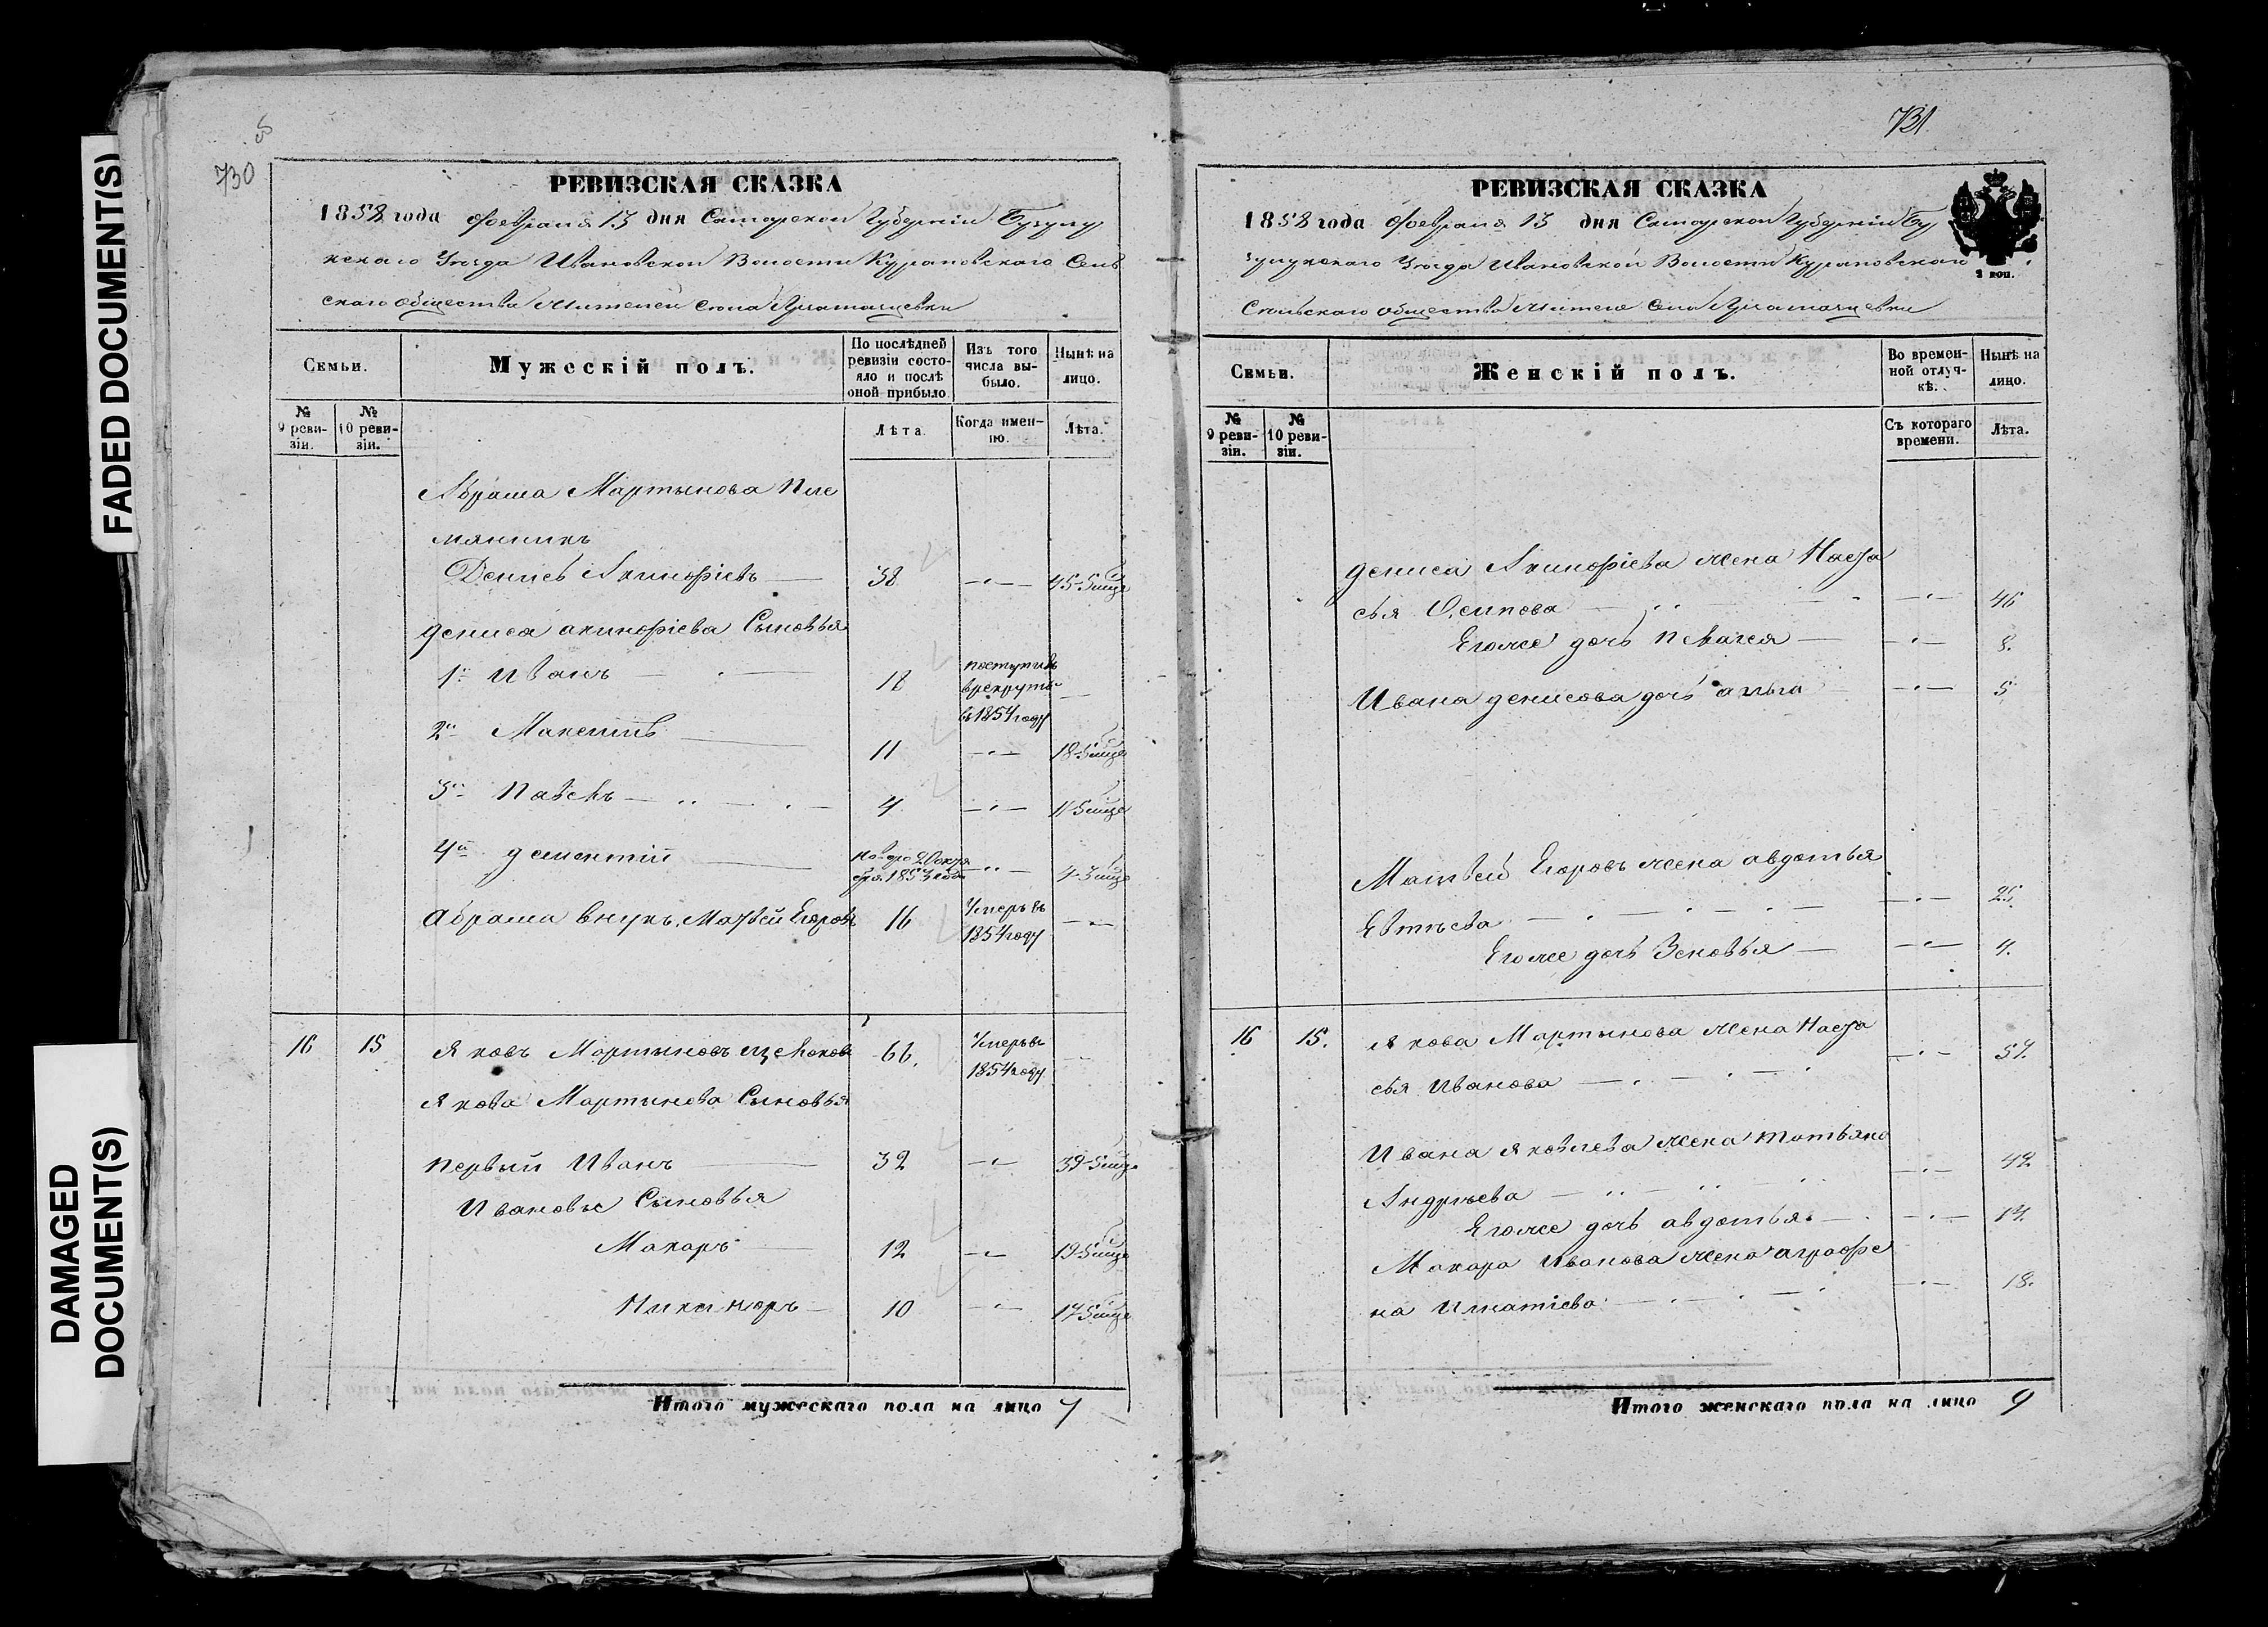 FADED DOCUMENT(S)
DAMAGED
DOCUMENT(S)
730
РЕВИЗСКАЯ СКАЗКА
1858 года февраля 13 дня Самарской Губерніи Бузулу
кскаго Уѣзда Ивановской Волости Курановскаго Сель
скаго общества жителей села
Семьи.
Мужескій полъ.
По послѣдней ревизіи состояло и послѣ оной прибыло
Изъ того числа выбыло.
Нынѣ на лицо.
№ 9 ревизіи.
№ 10 ревизіи.
Лѣта
Когда именно.
Лѣта.
Абрама Мартынова Пле
мянникъ
Денисъ Акинфіевъ 38 45-5 мцв
дениса акинфіева Сыновья
1й Иванъ 18 поступилъ в рекруты въ 1854 году
2й Максимъ 11 18-5 мцв
3й Павелъ 4 11-5 мцв
4й дементій 4-3 мцв
Абрама внукъ Матвей Егоровъ 16 Умеръ въ 1854 году
16 15 Яковъ Мартыновъ 66. Умеръ въ 1854 году
Якова Мартынова Сыновья
первый Иванъ 32 39-5 мцв
Ивановы Сыновья
Макаръ 12 19-5 мцв
Никаноръ 10 17-5 мцв
Итого мужескаго пола на лицо 7
731
РЕВИЗСКАЯ СКАЗКА
1858 года февраля 13 дня Самарской Губерніи Бу
зулукскаго Уѣзда Ивановской Волости Курановскаго
Сельскаго общества жителе села
2 коп.
Семьи.
Женскій полъ.
Во временной отлучкѣ.
Нынѣ на лицо.
№ 9 ревизіи.
№ 10 ревизіи.
Съ котораго времени.
Лѣта.
дениса Акинфіева жена Наста
сья Осипова 46
Егоже дочь Пелагея 8.
Ивана денисова дочь 5
Матвей Егоровъ жена авдотья
25.
Егоже дочь Зеновья 4.
16 15. Якова Мартынова жена Наста
сья Иванова 57.
Ивана яковлева жена татьяна
Андреева 42
Егоже дочь авдотья 14.
Макара Иванова жена аграфе
на Игнатіева 18.
Итого женскаго пола на лицо 9